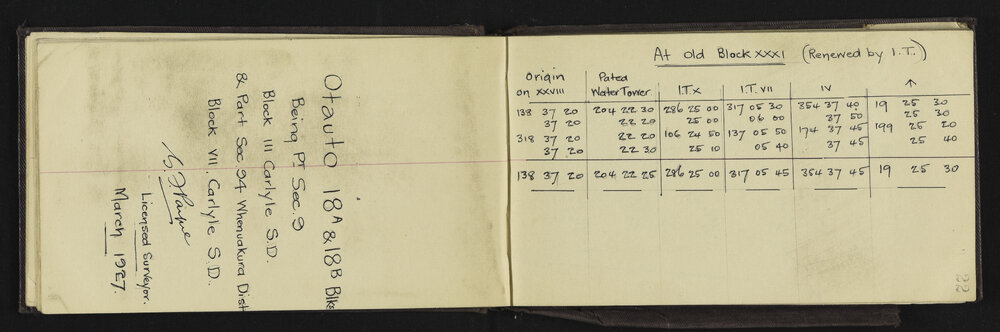 Otauto 18A & 18B Blks
Being Pt Sec. 9
Block III Carlyle S.D.
& Part Sec 94 Whenuakura Dist
Block VII. Carlyle S.D.
Licensed Surveyor.
March 1927.
At Old Block XXXI (Renewed by I.T.)
Origin on XXVIII | Patea Water Tower | I.T. X | I.T. VII | IV | ↑
138 37 20 | 204 22 30 | 286 25 00 | 317 05 30 | 354 37 40 | 19 25 30
37 20 | 22 20 | 25 00 | 06 00 | 37 50 | 25 30
318 37 20 | 22 20 | 106 24 50 | 137 05 50 | 174 37 45 | 199 25 20
37 20 | 22 30 | 25 10 | 05 40 | 37 45 | 25 40
138 37 20 | 204 22 25 | 286 25 00 | 317 05 45 | 354 37 45 | 19 25 30
22